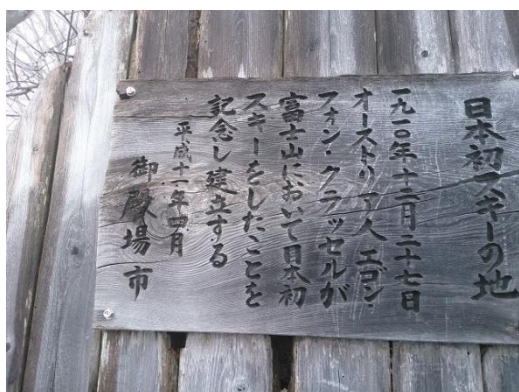 日本初スキーの地
一九一〇年十二月二十七日
オーストリア人エゴン・
フォン・クラッセルが
富士山において日本初
スキーをしたことを
記念し建立する
平成十一年四月
御殿場市